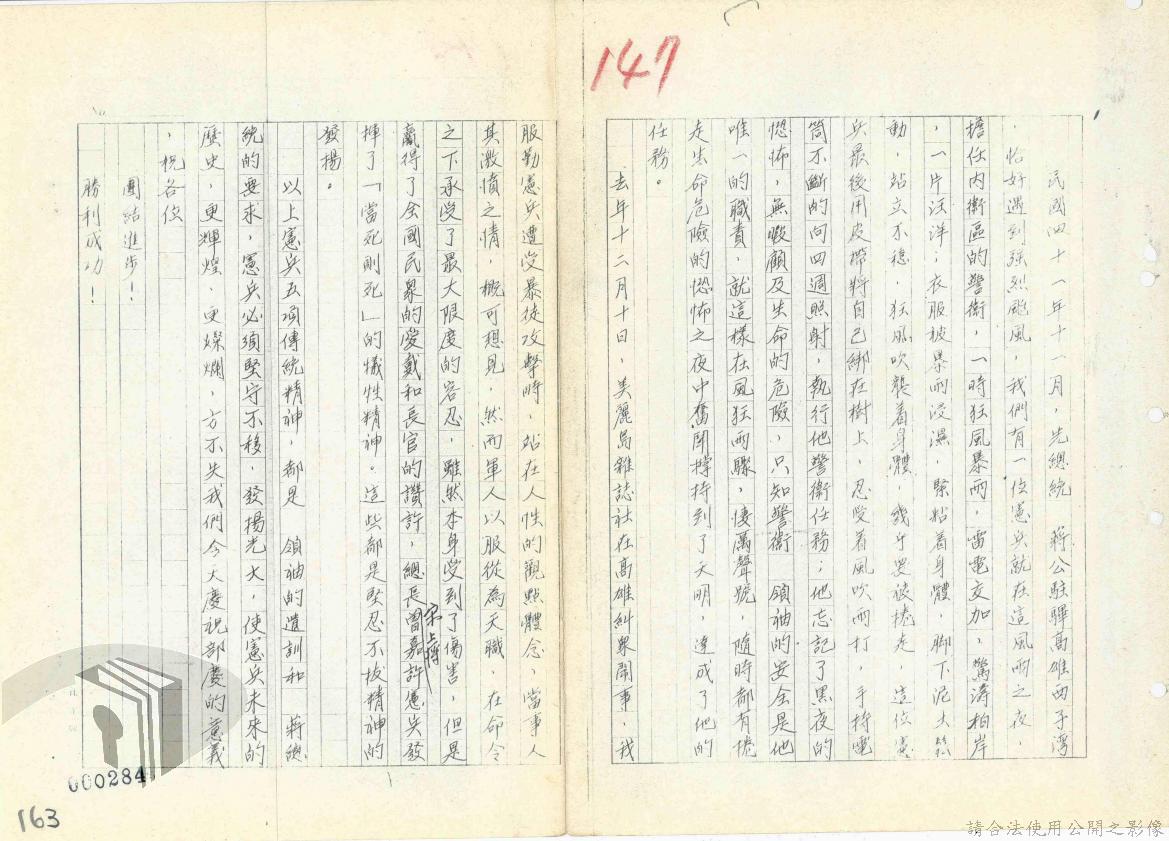 147
民國四十一年十一月，先總統　蔣公駐驆高雄西子灣
，恰好遇到強烈颱風，我們有一位憲兵就在這風雨之夜，
擔任內衛區的警衛，一時狂風暴雨，雷電交加，驚濤柏岸
，一片汪洋；衣服被暴雨浸濕，緊粘着身體，脚下泥土鬆
動，站立不穩，狂風吹襲着身體，幾乎要被捲走，這位憲
兵最後用皮帶將自己綁在樹上，忍受着風吹雨打，手持電
筒不斷的向四週照射，執行他警衛任務；他忘記了黑夜的
恐怖，無暇顧及生命的危險，只知警衛　領袖的安全是他
唯一的職責，就這樣在風狂雨驟，悽厲聲號，隨時都有捲
走生命危險的恐怖之夜中奮鬥撐持到了天明，達成了他的
任務。
去年十二月十日，美麗島雜誌社在高雄糾眾鬧事，我
服勤憲兵遭受暴徒攻擊時，站在人性的觀點體念，當事人
其激憤之情，概可想見，然而軍人以服從為天職，在命令
之下承受了最大限度的容忍，雖然本身受到了傷害，但是
贏得了全國民眾的愛戴和長官的讚許，總長宋上將曾嘉許憲兵發
揮了「當死則死」的犧性精神。這些都是堅忍不拔精神的
發揚。
以上憲兵五項傳統精神，都是　領袖的遺訓和　蔣總
統的要求，憲兵必須堅守不移，發揚光大，使憲兵未來的
歷史，更輝煌、更燦爛，方不失我們今天慶祝部慶的意義
，祝各位
團結進步！
勝利成功！
000284
163
請合法使用公開之影像